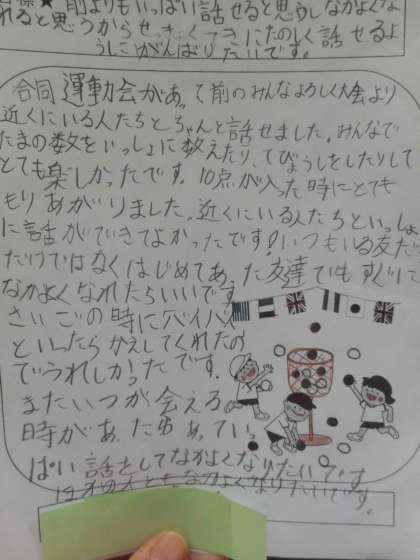 前よりもいっぱい話せると思うしなかよくな
れると思うからせっきょくてきにたのしく話せるよ
うにがんばりたいです。
合同運動会があって前のみんなよろしく大会より
近くにいる人たちとちゃんと話せました。みんなで
たまの数をいっしょに数えたり、てびょうしをしたりして
とても楽しかったです。10点が入った時にとても
もりあがりました。近くにいる人たちといっしょ
に話ができてよかったです!いつもいる友だち
だけではなくはじめてあった友達でもすぐに
なかよくなれたらいいです。
さいごの時にバイバイ
といったらかえしてくれたの
でうれしかったです。
またいつか会える
時があったらいっ
ぱい話をしてなかよくなりたいです。
なかよくなりたいです。